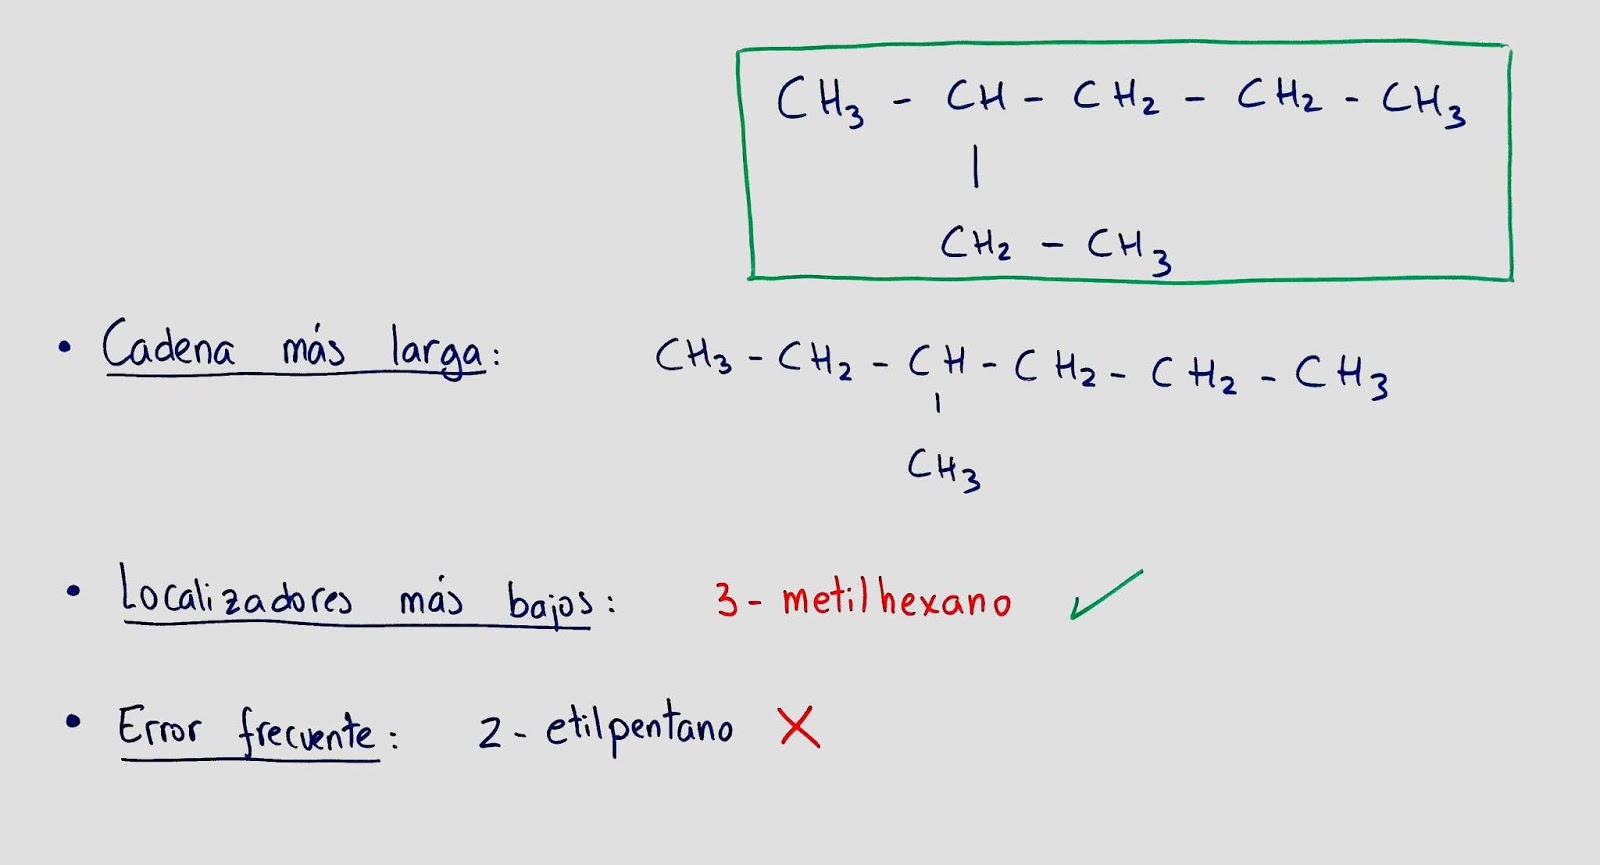 CH3 - CH - CH2 - CH2 - CH3
|
CH2 - CH3
• Cadena más larga: CH3 - CH2 - CH - CH2 - CH2 - CH3
|
CH3
• Localizadores más bajos: 3 - metilhexano ✓
• Error frecuente: 2 - etilpentano X